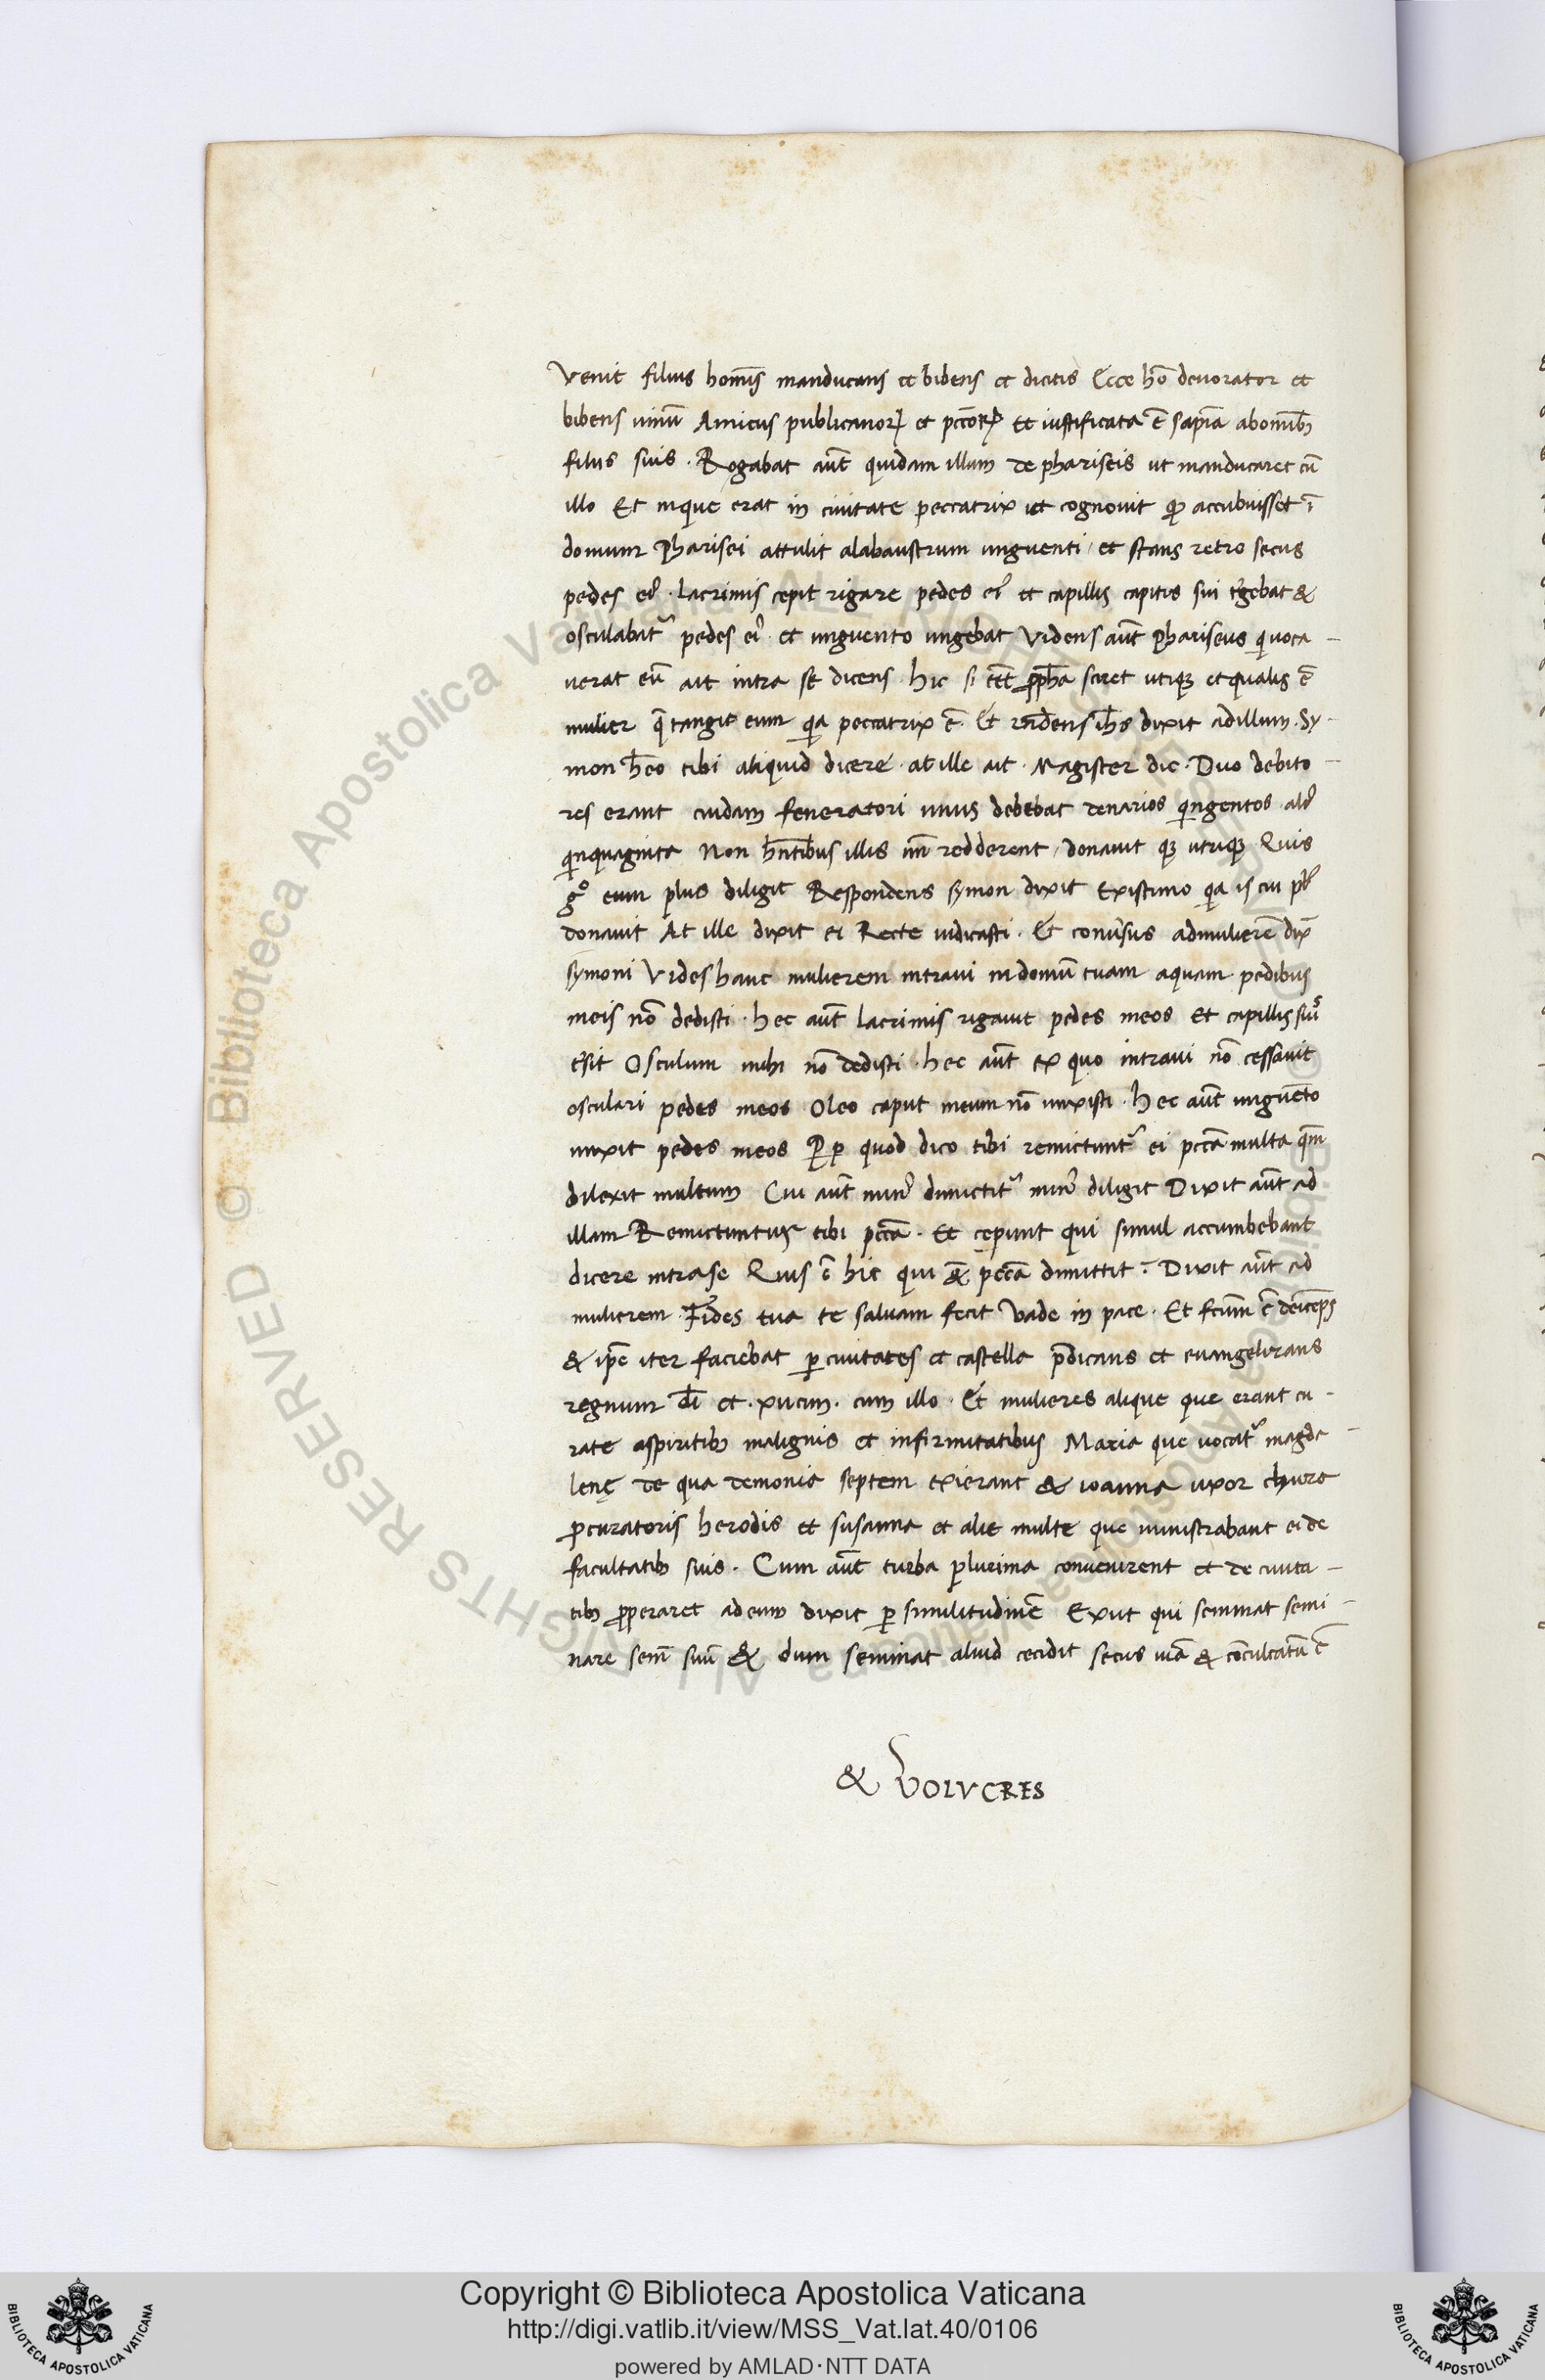 Venit filius homīs manducans et bibens et dicitis Ecce hō devorator et
bibens vinū Amicus publicanoꝝ et pccōꝝ Et iustificata ē sapīa ab omībꝫ
filiis suis. Rogabat aūt quidam illum de phariseis ut manducaret cū
illo Et mque erat in civitate peccatrix ut cognovit ꝙ accubuisset ī
domum Pharisei attulit alabaustrum ungventi et stans retro secus
pedes eiꝰ. lacrimis cepit rigare pedes eiꝰ et capillis capitis sui tgebat &
osculabat᷑ pedes eiꝰ et ungvento ungebat Videns aūt Phariseus qi voca-
verat eū ait intra se dicens. hic si eēt ꝓpha sciret utiqꝫ et qualis ē
mulier q̄ tangit eum qia peccatrix ē. Et rn̄dens ihs dixit ad illum. Sy-
mon hēo tibi aliquid dicere. at ille ait. Magister dic. Duo debito-
res erant cuidam feneratori unus debebat denarios qingentos. aliꝰ
qinquaginta Non hn̄tibus illis un̄ redderent, donavit qꝫ utriqꝫ Quis
gͦ eum plus diligit Respondens symon dixit Existimo qia is cui plꝰ
donavit At ille dixit ei Recte iudicasti. Et conv̄sus ad mulierē dix̄
symoni Vides hanc mulierem intravi in domū tuam aquam pedibus
meis nō dedisti. hec aūt lacrimis rigavit pedes meos Et capillis suis
t̄sit Osculum mihi nō dedisti. hec aūt ex quo intravi nō cessavit
osculari pedes meos Oleo caput meum nō unxisti. hec aūt ungvēto
unxit pedes meos Ꝓp quod dico tibi remictunt᷑ ei pccā multa qm̄
dilexit multum Cui aūt minꝰ dimictit᷑ minꝰ diligit Dixit aūt ad
illam Remictuntur tibi pccā. Et cepunt qui simul accumbebant
dicere intra se Quis ē hic qui &̄ pccā dimittit. Dixit aūt ad
mulierem. Fides tua te salvam fecit Vade in pace. Et fcūm ē deīceps
& ipē iter faciebat ꝑ civitates et castella p̄dicans et euangelizans
regnum dī et. xiicim. cum illo. Et mulieres alique que erant cu-
rate aspiritibꝫ malignis et infirmitatibus Maria que vocat᷑ magda-
lenę de qua demonia septem exierant & ioanna uxor chuza
ꝓcuratoris herodis et susanna et alie multe que ministrabant ei de
facultatibꝫ suis. Cum aūt turba plurima convenirent et de civita-
tibꝫ ꝓperaret ad eum dixit ꝑ similitudinē Exiit qui seminat semi-
nare semē suū & dum seminat aliud cecidit secus viā & cōculcatū ē
& VOLVCRES
Copyright © Biblioteca Apostolica Vaticana
http://digi.vatlib.it/view/MSS_Vat.lat.40/0106
powered by AMLAD·NTT DATA